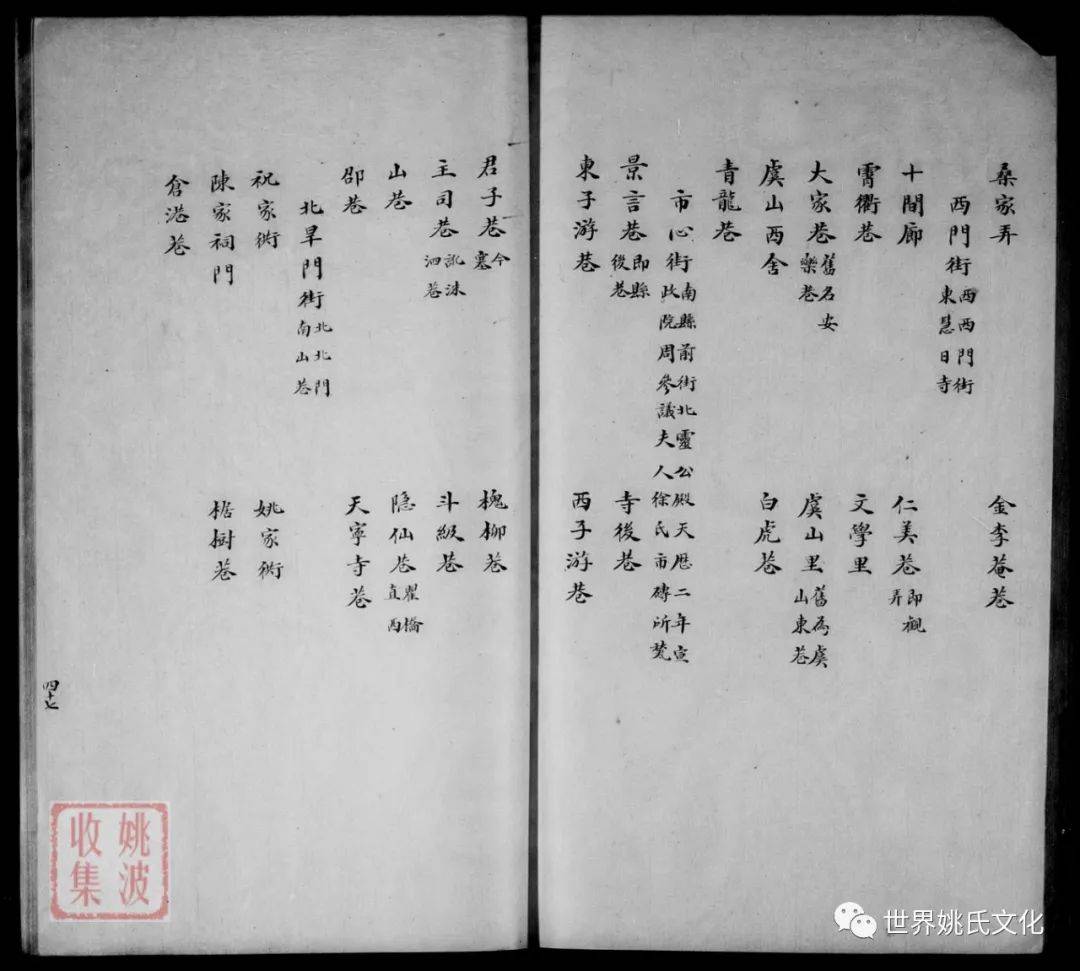 桑家弄 金李菴巷
西門街西西門街東慧日寺
十間廊 仁美巷即觀弄
霄衢巷 文學里
大家巷舊名安樂巷 虞山里舊為虞山東巷
虞山西舍 白虎巷
青龍巷
市心街南縣前街北靈公殿天厯二年宣政院周參議夫人徐氏市磚所甃
景言巷即縣後巷 寺後巷
東子游巷 西子游巷
君子巷今塞 槐柳巷
主司巷訛洙泗巷 斗級巷
山巷 隐仙巷瞿橋直西
邵巷 天寧寺巷
北旱門街北北門南山巷
祝家衖 姚家衖
陳家祠門 楮樹巷
倉港巷
四十七
姚波
收集
世界姚氏文化